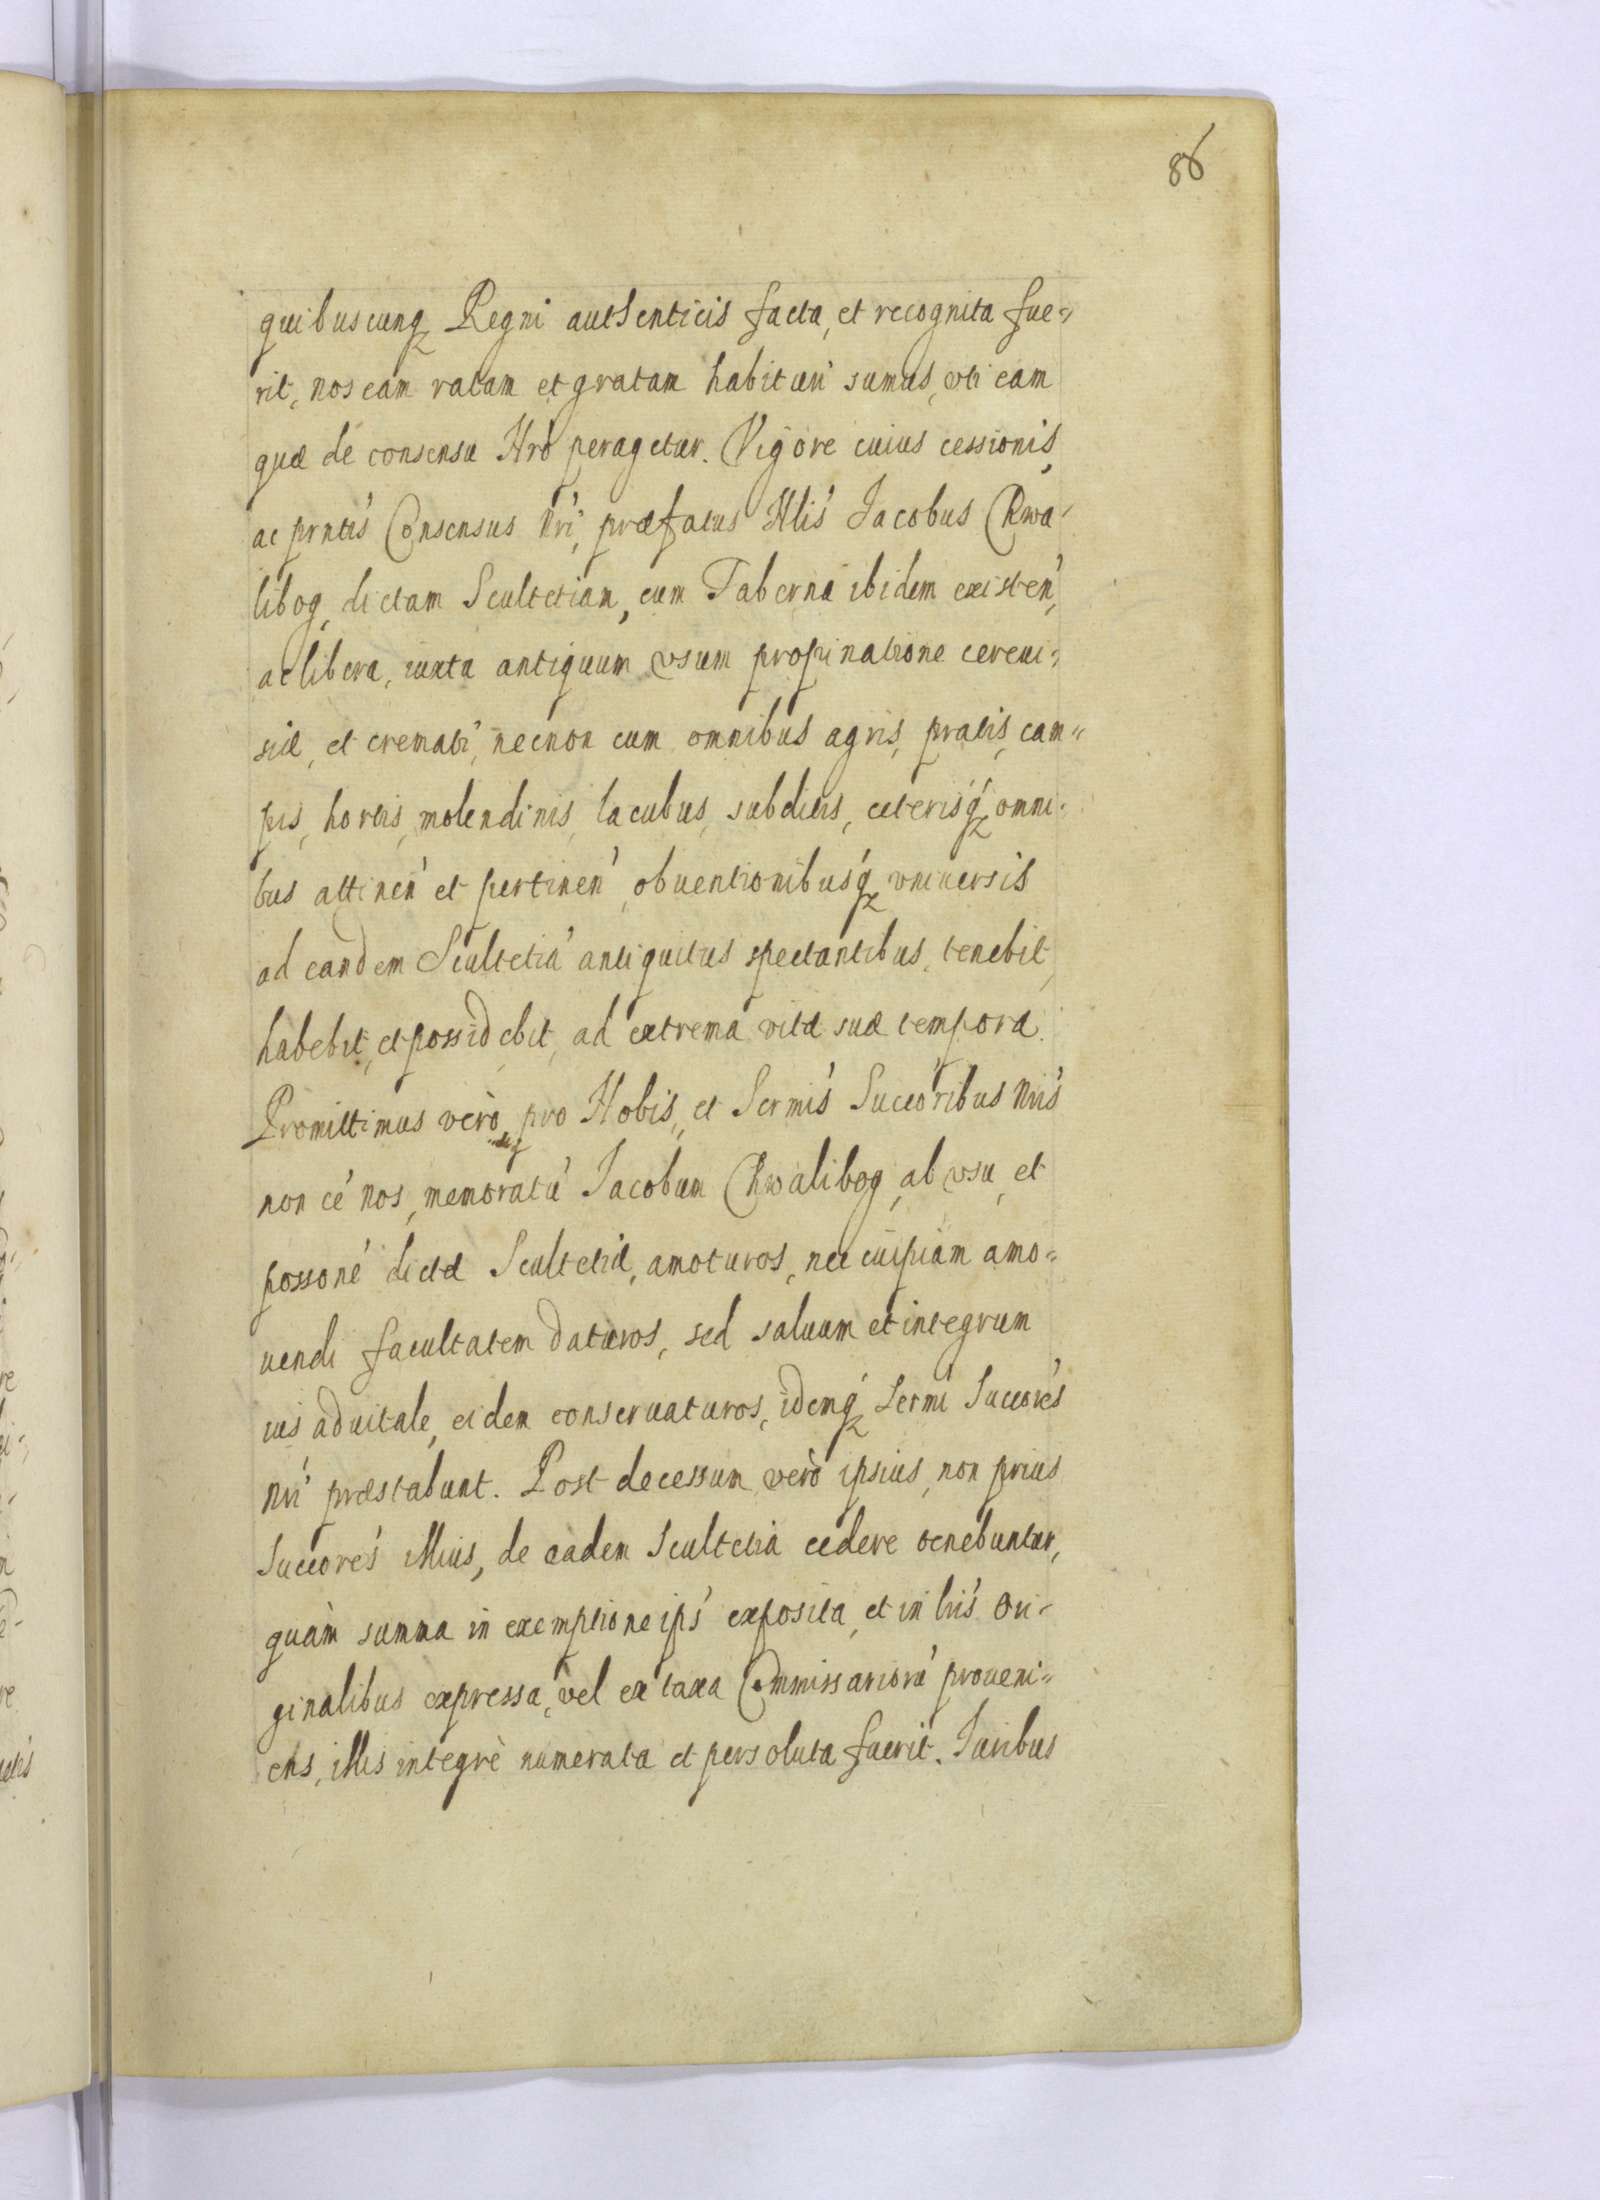 86
quibuscunq Regni authenticis facta, et recognita fue=
rit, nos eam ratam et gratam habituri sumus, vti eam
quæ de consensu Nrõ peragetur. Vigore cuius cessionis,
ac pñtis Consensus Nri, præfatus Nlis Jacobus Chwa-
libog, dictam Scultetiam, cum Taberna ibidem existen',
ac libera, iuxta antiquum vsum propinatione cereui=
siæ, et cremati, necnon cum omnibus agris, pratis, cam=
pis, hortis, molendinis, lacubus, subditis, ceterisq omni=
bus attinen' et pertinen', obuentionibusq vniuersis
ad eandem Scultetia' antiquitus spectantibus, tenebit,
habebit, et possidebit, ad extrema vitæ suæ tempora.
Promittimus verò, pro Nobis, et Sermis Succoribus Nris
non ce' nos, memoratu' Jacobum Chwalibog, ab vsu, et
possone' dictæ Scultetiæ, amoturos, nec cuipiam amo=
uendi facultatem daturos, sed saluum et integrum
ius aduitale, eidem conseruaturos, idemq Sermi Succores
Nri præstabunt. Post decessum verò ipsius, non prius
Succores illius, de eadem Scultetia cedere tenebuntur,
quàm summa in exemptione ips' exposita, et in lris Ori-
ginalibus expressa, vel ex taxa Commissarioru' proueni=
ens, illis integrè numerata et persoluta fuerit. Juribus